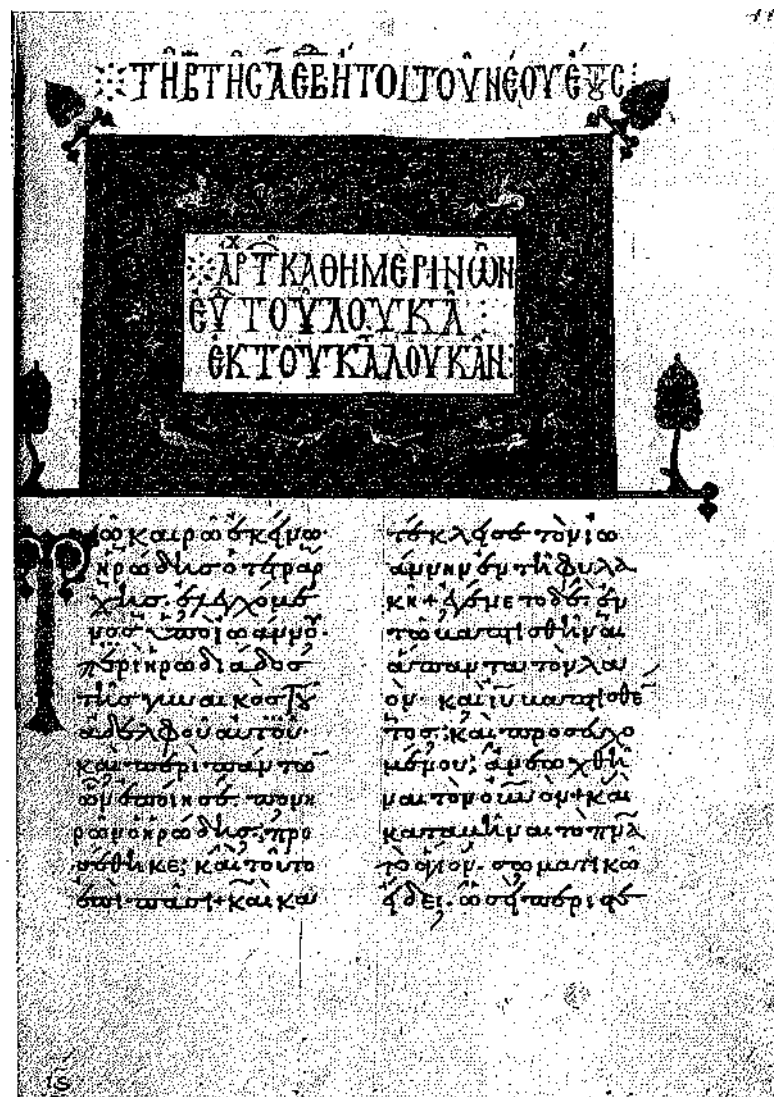 ΤΗ Β ΤΗΣ Α ΕΒ ΗΤΟΙ ΤΟΥ ΝΕΟΥ ΕΤΟΥΣ
ΑΡΧ Τ ΚΑΘΗΜΕΡΙΝΩΝ
ΕΥ ΤΟΥ ΛΟΥΚΑ
ΕΚ ΤΟΥ ΚΑ ΛΟΥΚΑΝ
Τῶ καιρῶ ἐκείνω·
ἡρώδης ὁ τετραρ
χης· ἐλεγχόμε
νος ὑπὸ ἰωάννου·
περὶ ἡρωδιάδος
τῆς γυναικὸς τοῦ
ἀδελφοῦ αὐτοῦ·
καὶ περὶ πάντω
ὧν ἐποίησε πονη
ρῶν ὁ ἡρώδης; προ
σέθηκε; καὶ τοῦτο
ἐπὶ πᾶσι + καὶ κα
τέκλεισε τὸν ἰω
άννην ἐν τῆ φυλα
κῆ + ἐγένετο δὲ ἐν
τῶ βαπτισθῆναι
ἅπαντα τὸν λα
όν· καὶ ιυ βαπτισθέ
τος; καὶ προσευχο
μένου; ἀνεωχθῆ
ναι τὸν οὐνον + καὶ
καταβῆναι τὸ πνα
τὸ ἅγιον· σωματικῶ
εἴδει· ὡσεὶ περιστε